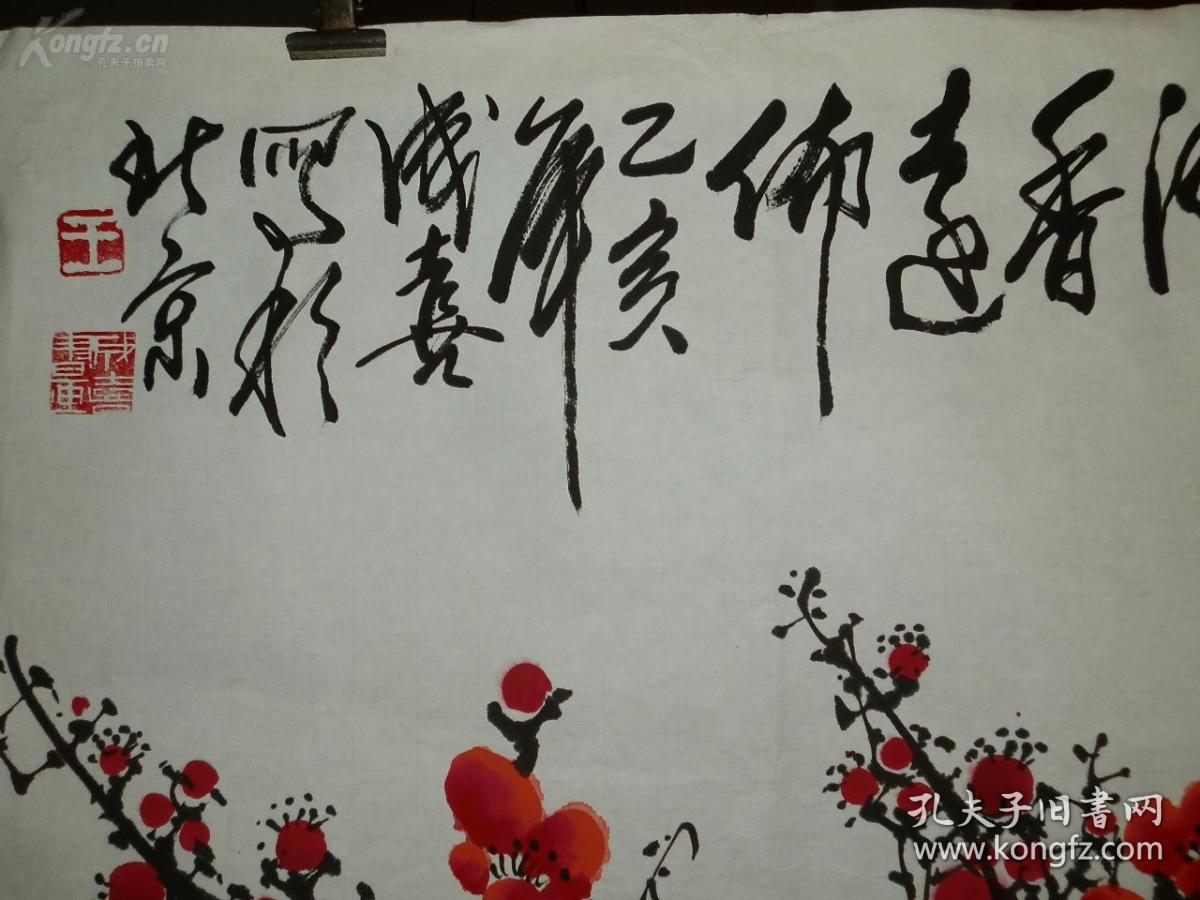 香
遠
佈
乙亥
年
成喜
寫於
北京
王
成喜書画
Kongfz.cn
孔夫子拍卖网
孔夫子旧书网
www.kongfz.com